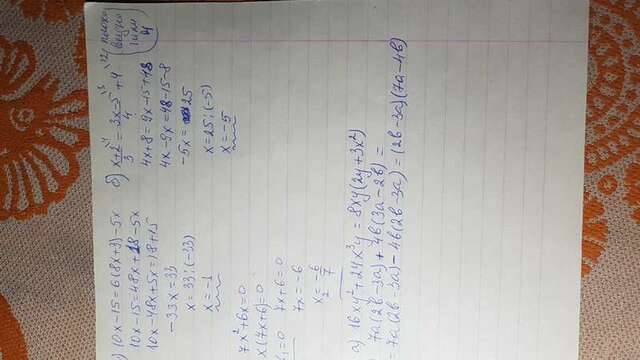 ) 10x-15=6(8x+3)-5x
10x-15=48x+18-5x
10x-48x+5x=18+15
-33x=33
x=33:(-33)
x=-1
б) x+2/3 = 3x-5/4 + 4
4x+8=9x-15+48
4x-9x=48-15-8
-5x=25
x=25:(-5)
x=-5
7x²+6x=0
x(7x+6)=0
x₁=0 7x+6=0
7x=-6
x₂=-6/7
а) 16xy²+24x³y=8xy(2y+3x²)
7a(2b-3a)+4b(3a-2b)=
=7a(2b-3a)-4b(2b-3a)=(2b-3a)(7a-4b)